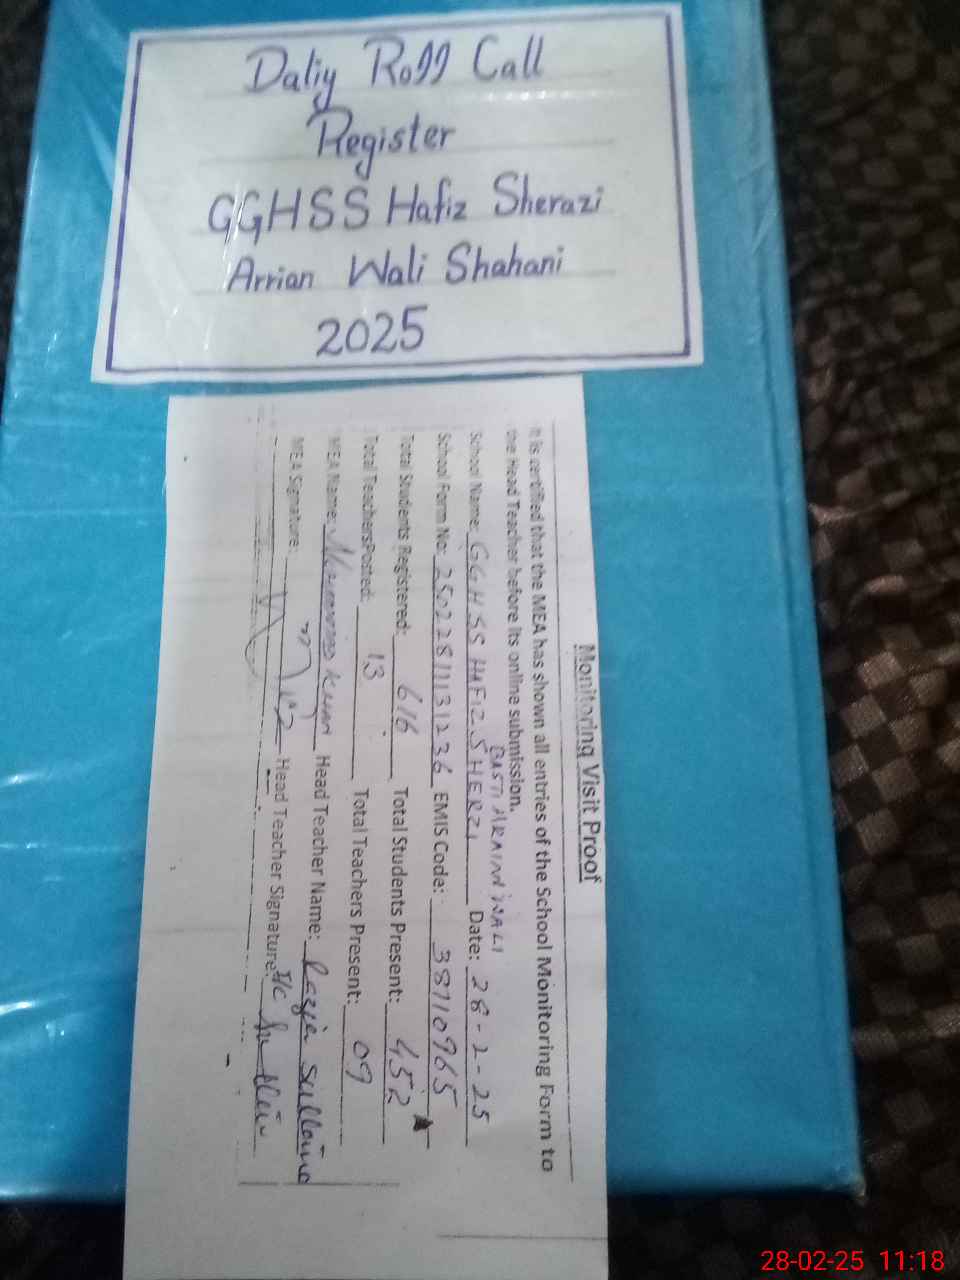 Daliy Roll Call
Register
GGHSS Hafiz Sherazi
Arrian Wali Shahani
2025
Monitoring Visit Proof
It is certified that the MEA has shown all entries of the School Monitoring Form to
the Head Teacher before its online submission.
BASTI ARAIN WALI
School Name: GGHSS HAFIZ SHERZI Date: 28-2-25
School Form No: 25022811131236 EMIS Code: 38710965
Total Students Registered: 616 Total Students Present: 452
Total TeachersPosted: 13 Total Teachers Present: 09
MEA Name: Khan Head Teacher Name: Razia Sulltana
MEA Signature: Head Teacher Signature: I/C
28-02-25 11:18